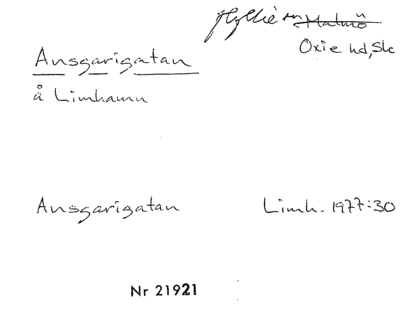 Hyllie sn Malmö
Oxie hd, Sk
Ansgarigatan
å Limhamn
Ansgarigatan Limh. 1977:30
Nr 21921